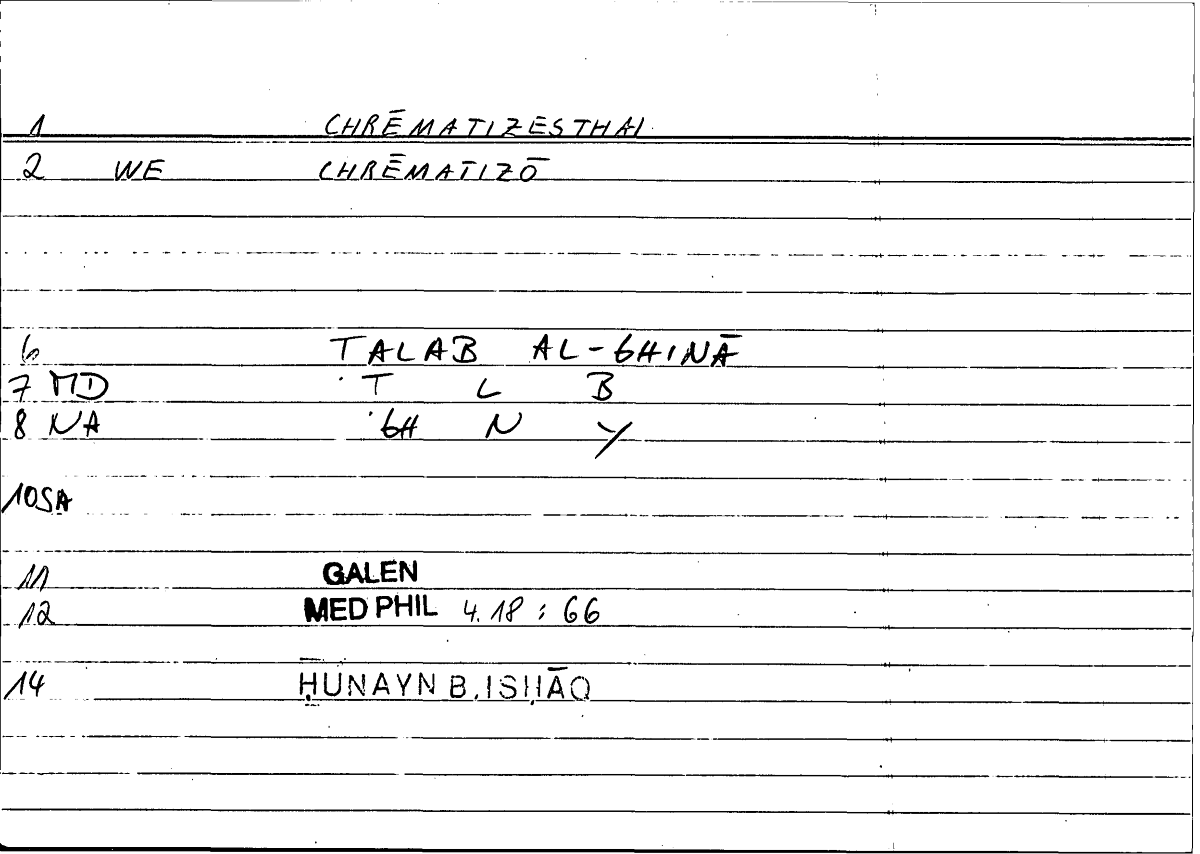 1 CHRĒMATIZESTHAI
2 WE CHRĒMATIZŌ
6 TALAB AL-GHINĀ
7 MD T L B
8 NA GH N Y
10 SA
11 GALEN
12 MED PHIL 4.18 : 66
14 ḤUNAYN B. ISḤĀQ